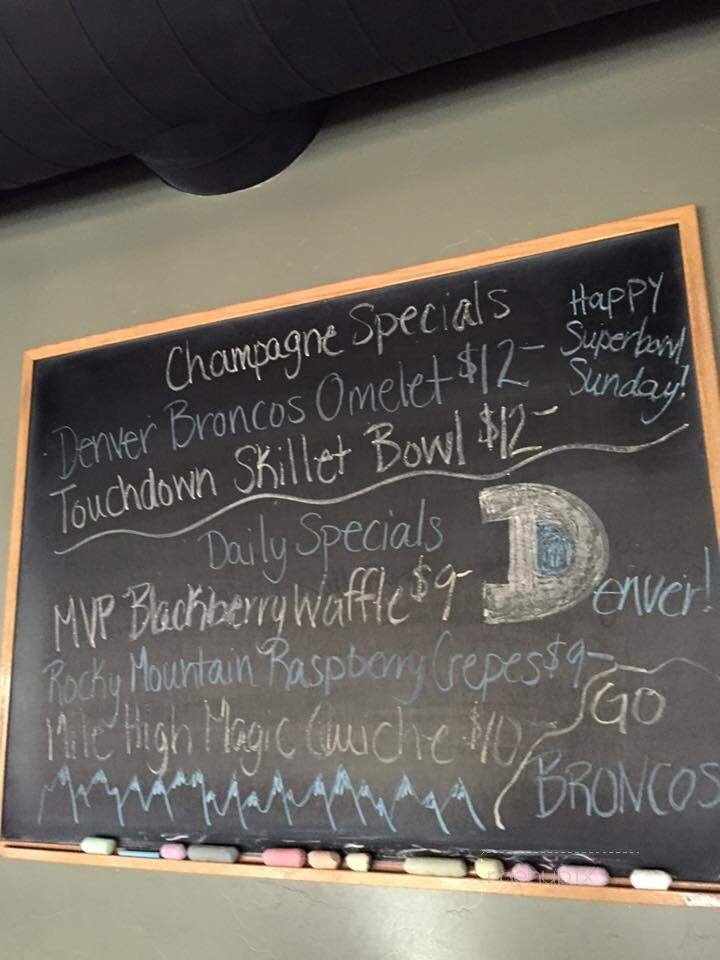 Champagne Specials
Denver Broncos Omelet $12-
Touchdown Skillet Bowl $12-
Happy
Superbowl
Sunday!
Daily Specials
MVP Blackberry Waffle $9-
Rocky Mountain Raspberry Crepes $9-
Mile High Magic Quiche $10-
Denver!
GO
BRONCOS